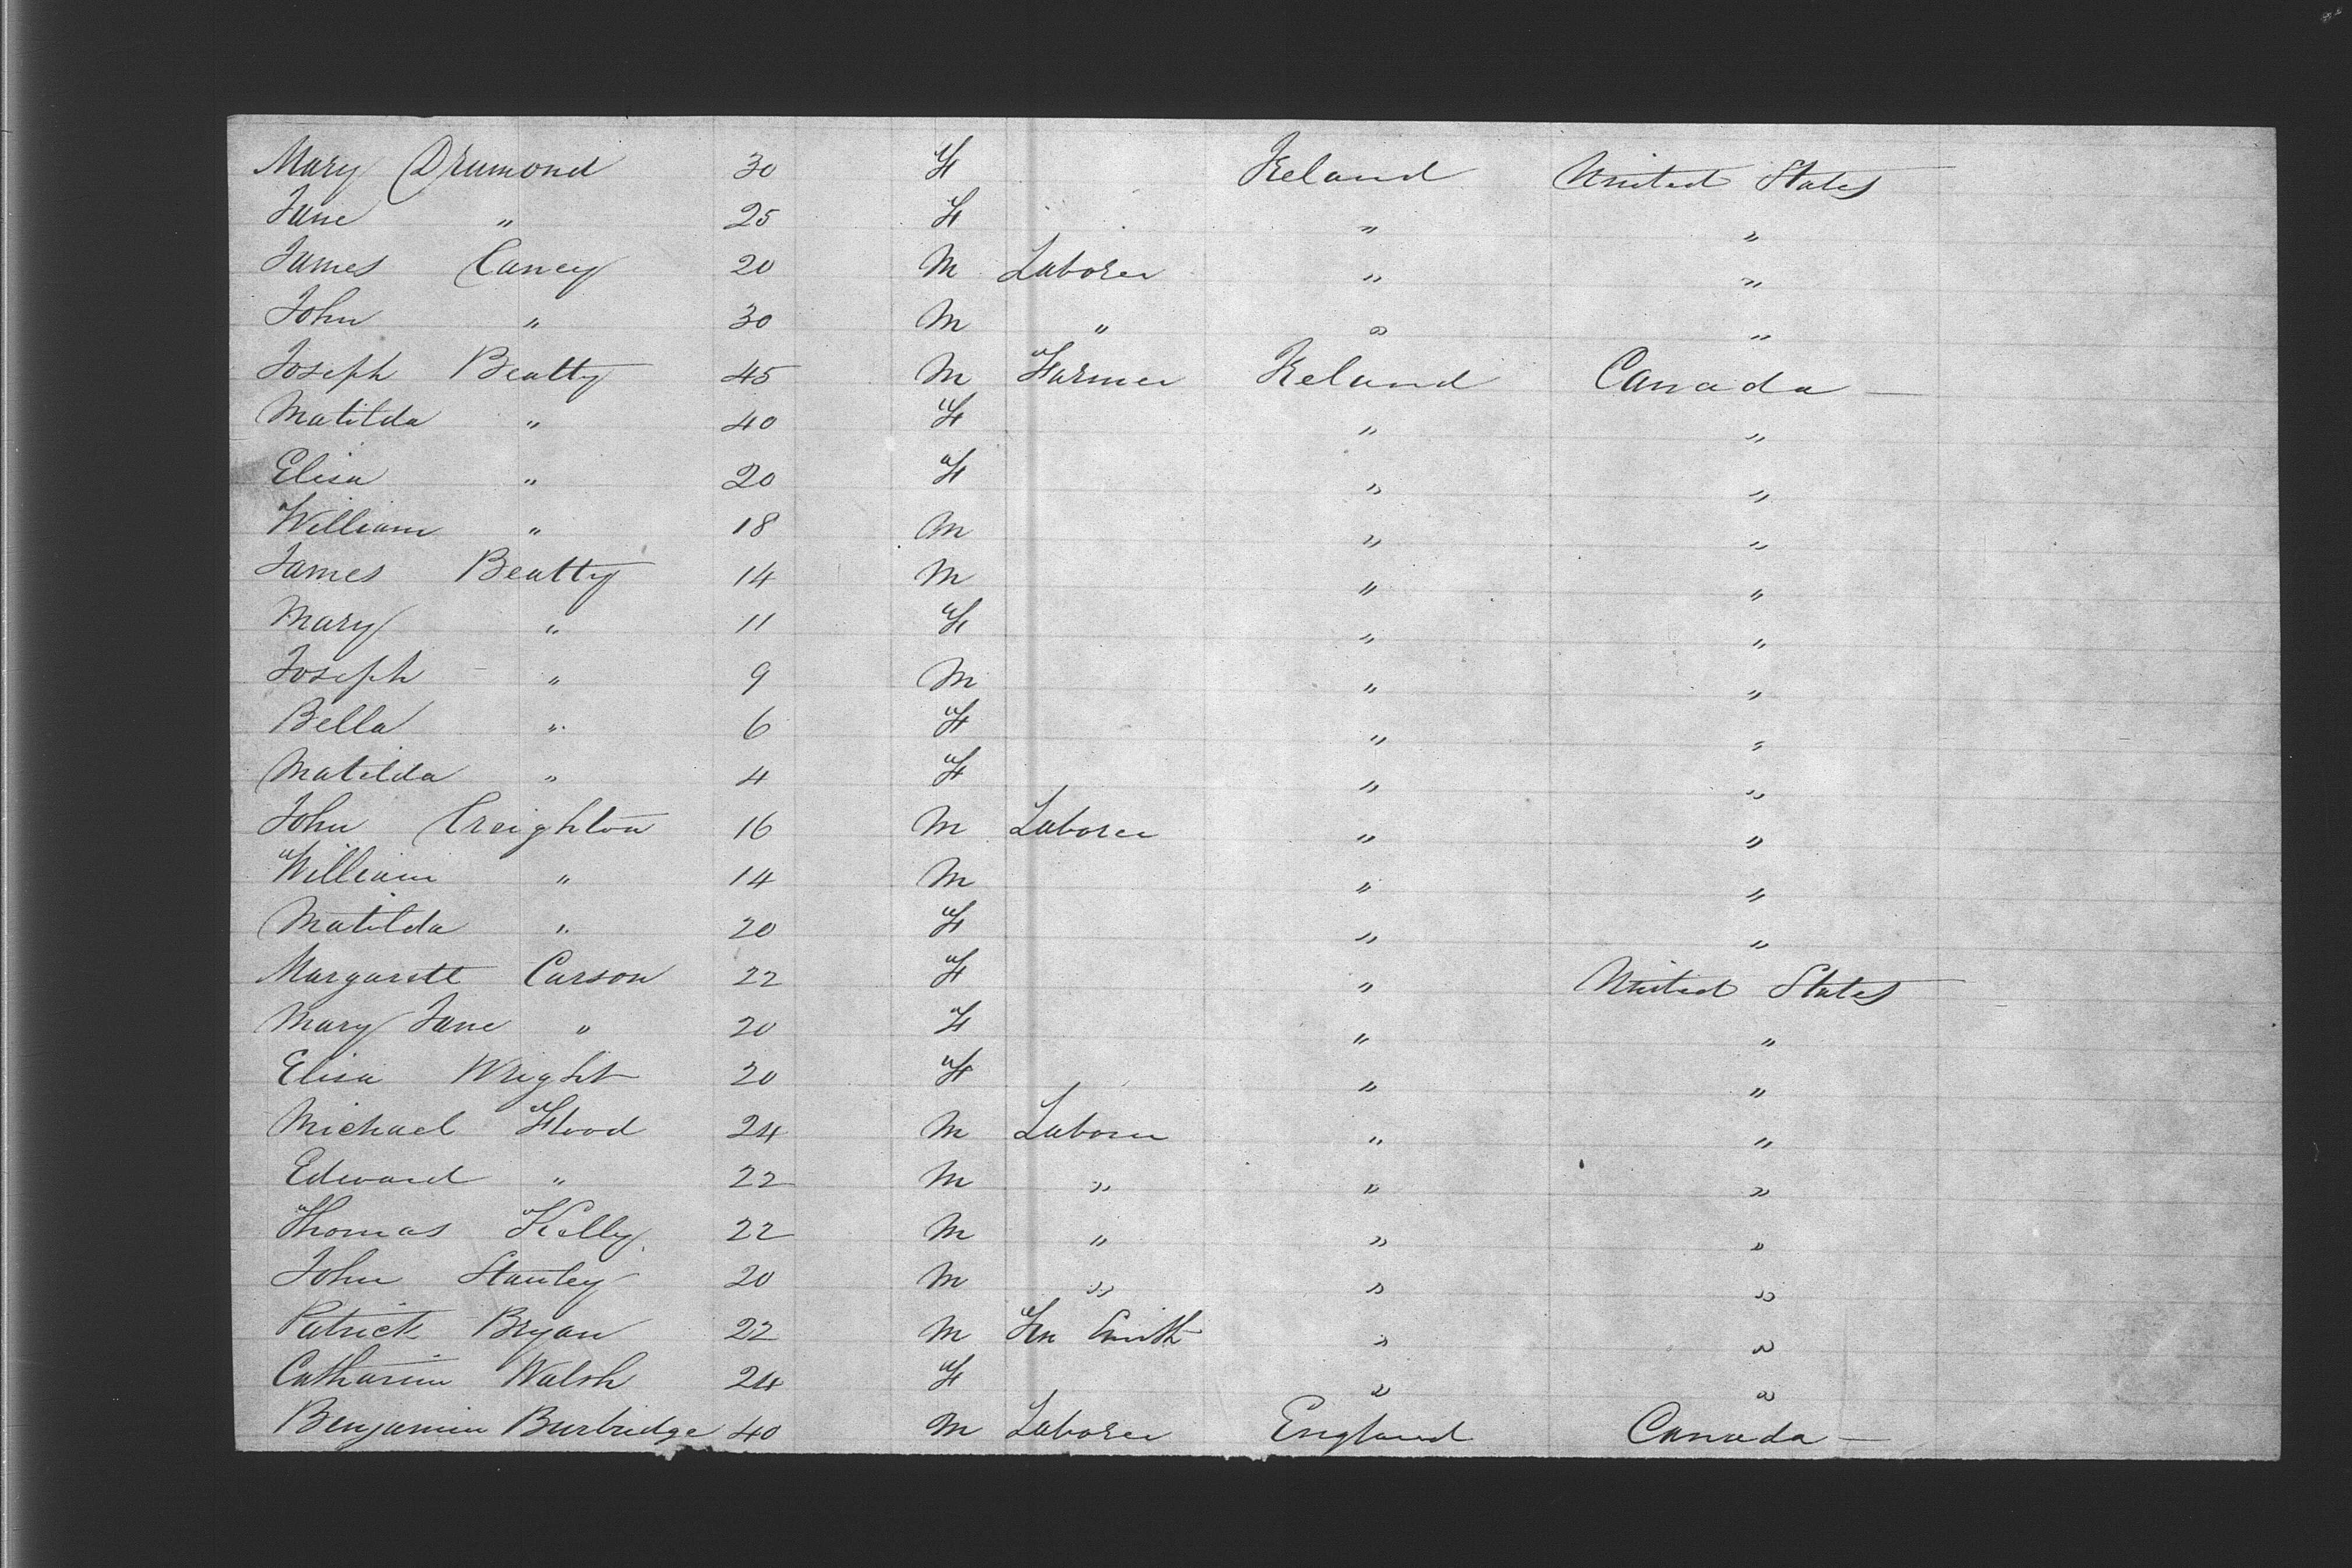 Mary Drumond 30 F Ireland United States
Jane " 25 F " "
James Caney 20 M Laborer " "
John " 30 M " " "
Joseph Beatty 45 M Farmer Ireland Canada —
Matilda " 40 F " "
Elisa " 20 F " "
William " 18 M " "
James Beatty 14 M " "
Mary " 11 F " "
Joseph " 9 M " "
Bella " 6 F " "
Matilda " 4 F " "
John Creighton 16 M Laborer " "
William " 14 M " "
Matilda " 20 F " "
Margarett Carson 22 F " United States
Mary Jane " 20 F " "
Elisa Wright 20 F " "
Michael Flood 24 M Laborer " "
Edward " 22 M " " "
Thomas Kelly 22 M " " "
John Stanley 20 M " " "
Patrick Bryan 22 M Smith " "
Catharine Walsh 24 F " "
Benjamin Burbridge 40 M Laborer England Canada —